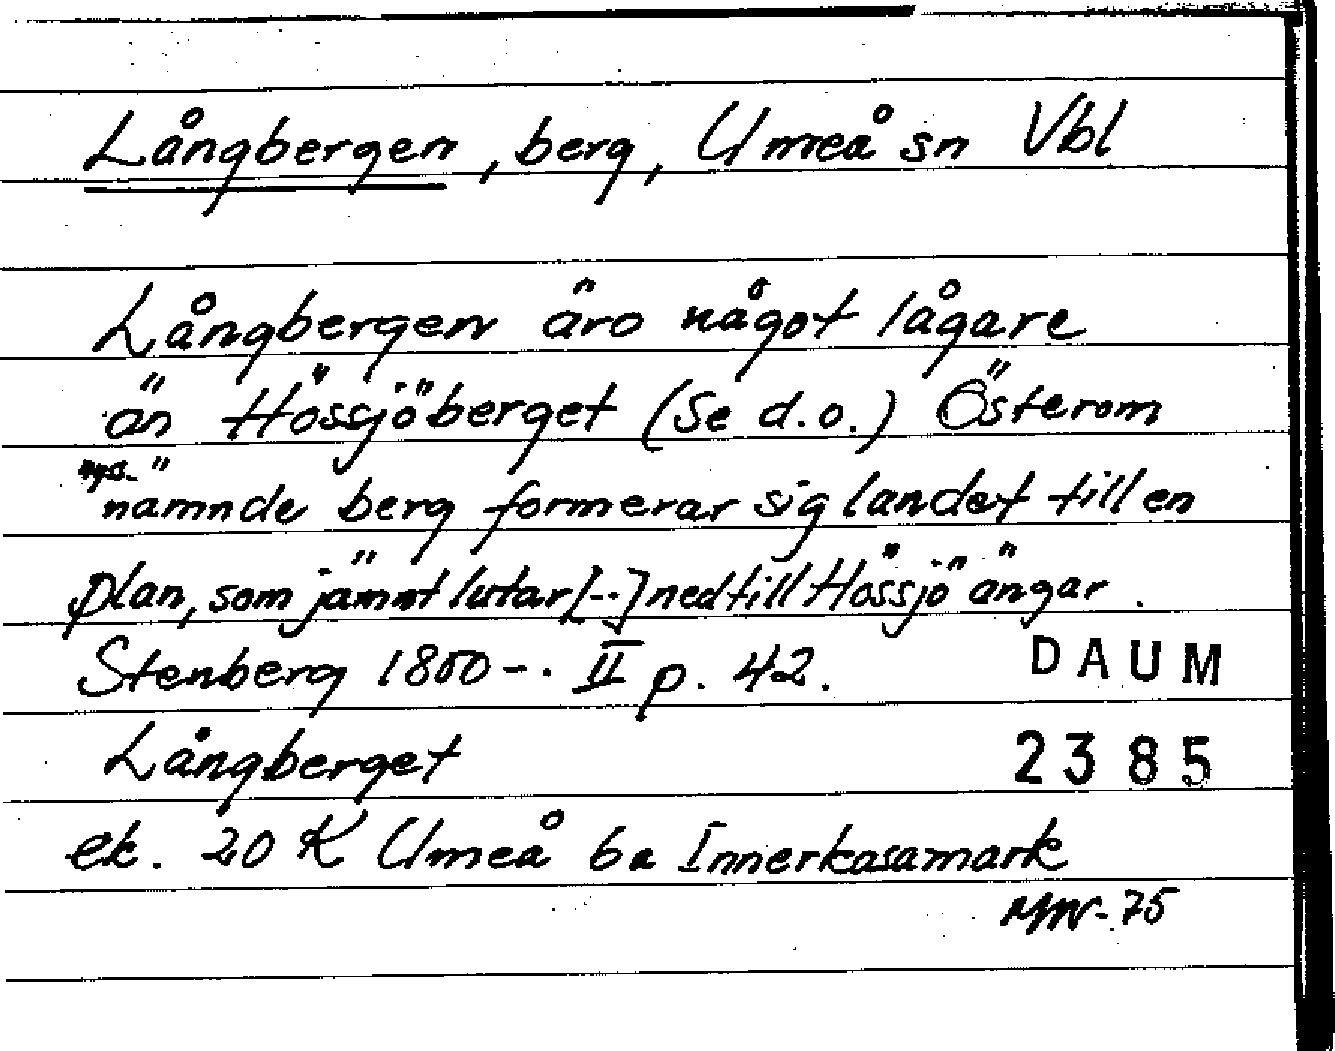 Långbergen, berg, Umeå sn Vbl
Långbergen äro något lågare
än Hössjöberget (Se d.o.) Österom
nys-
nämnde berg formerar sig landet till en
plan, som jämnt lutar [--] ned till Hössjö ängar.
Stenberg 1800-. II p. 42. DAUM
Långberget 2385
ek. 20 K Umeå 6a Innerkasamark
MW-75